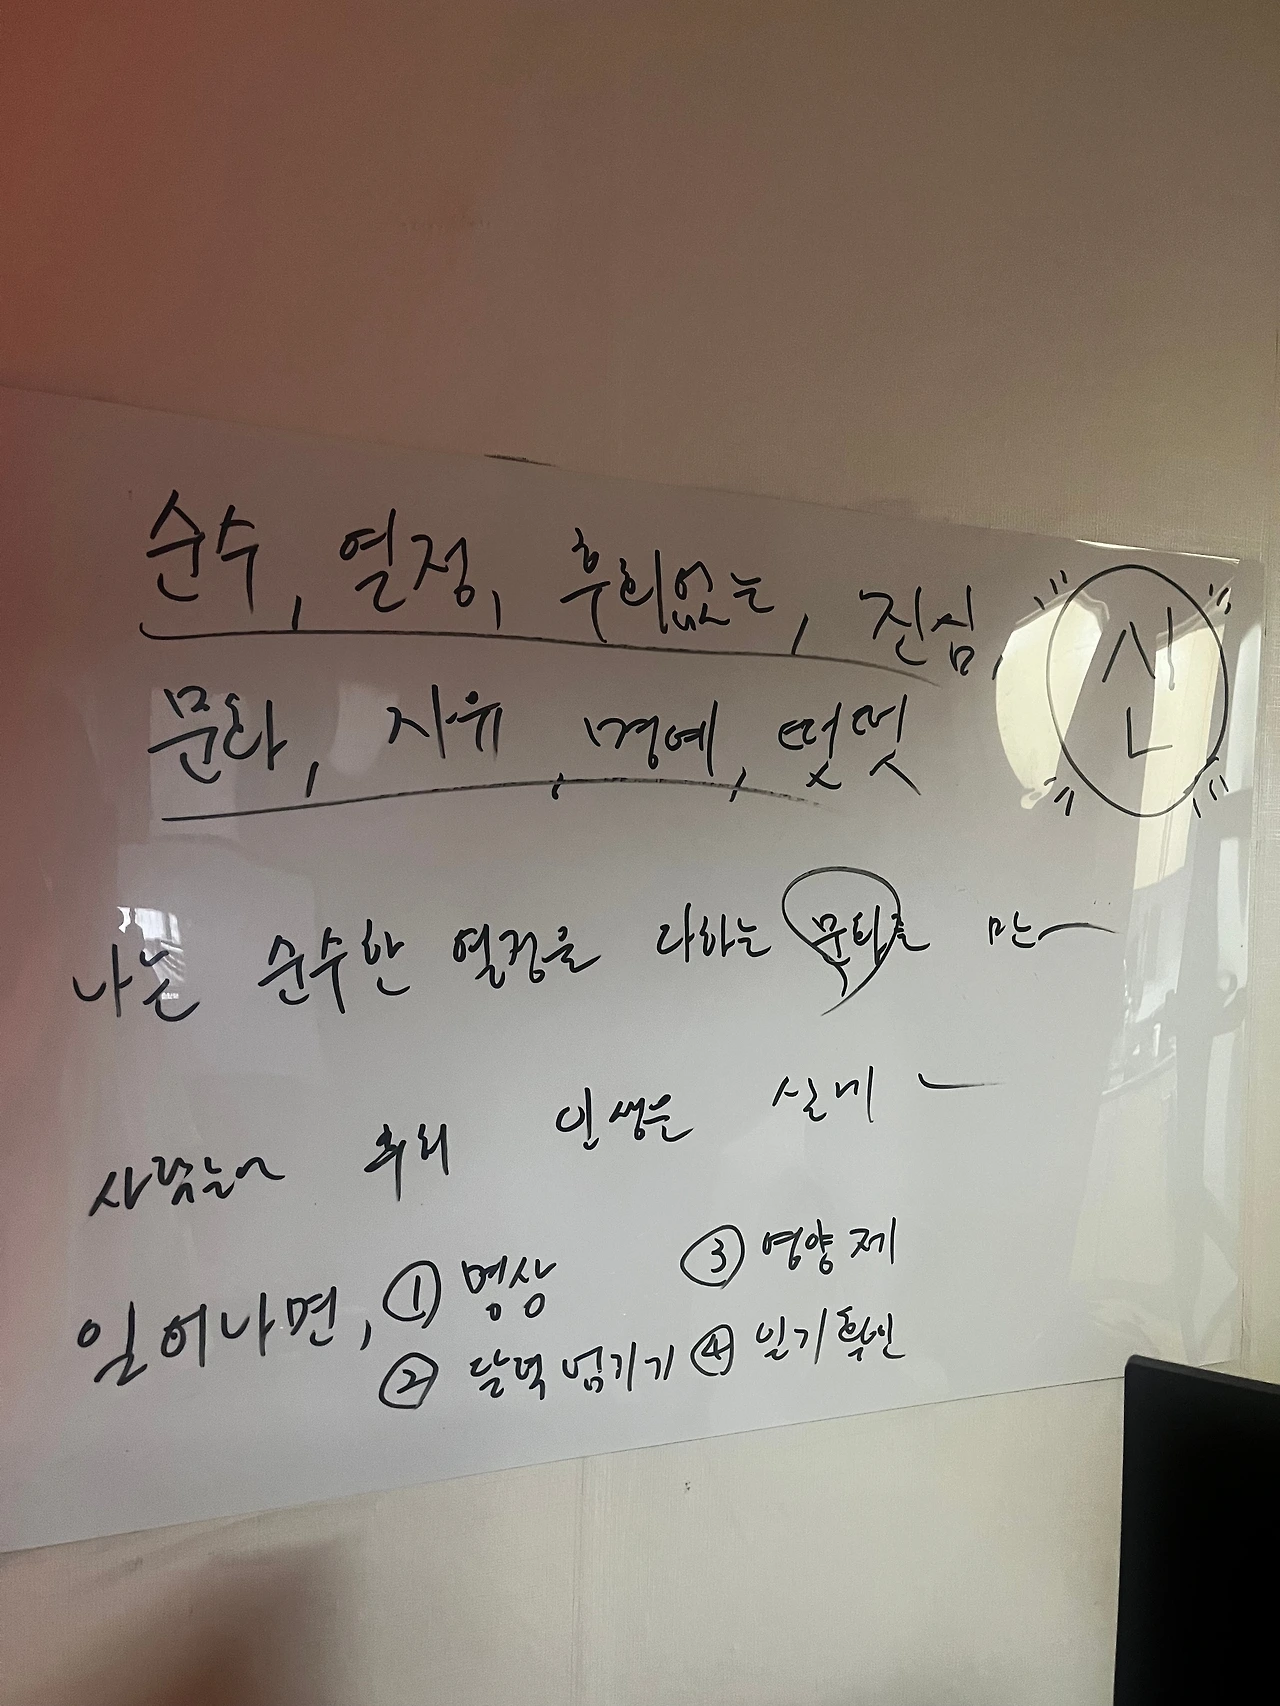 순수, 열정, 후회없는, 진심, 신
문화, 자유, 명예, 떳떳
나는 순수한 열정을 다하는 문화를 만
후회 인생은 실례
일어나면, ① 명상 ③ 영양제
② 달력 넘기기 ④ 일기 확인